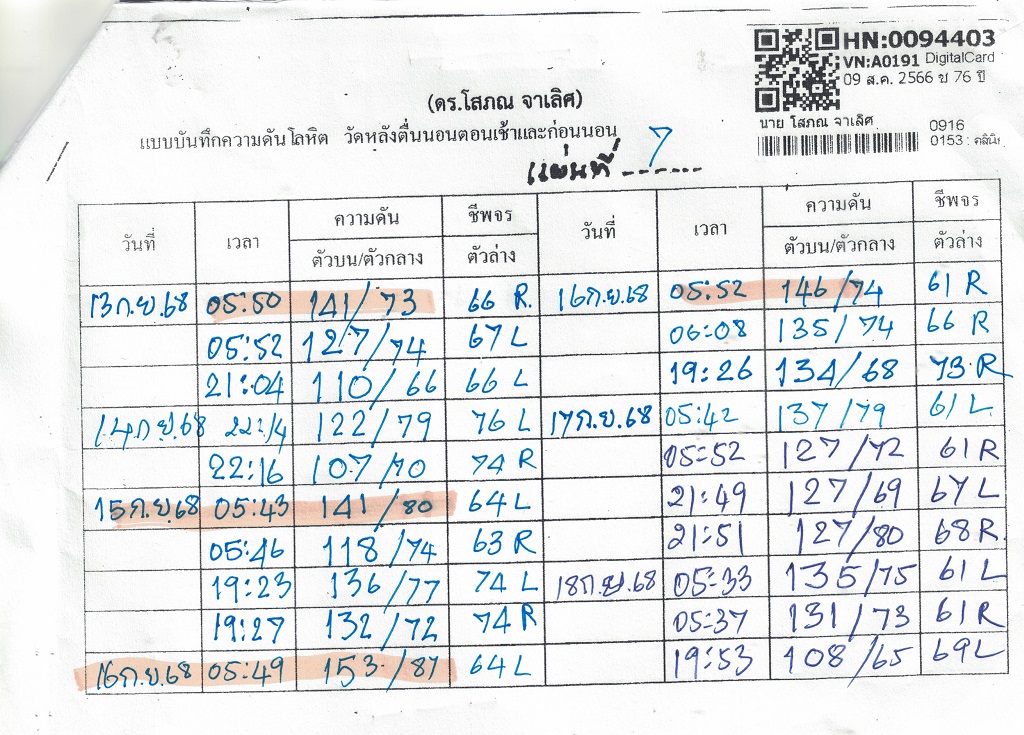 HN:0094403
VN:A0191 DigitalCard
09 ส.ค. 2566 ช 76 ปี
นาย โสภณ จาเลิศ
0916
0153 : คลินิ
(ดร.โสภณ จาเลิศ)
แบบบันทึกความดันโลหิต วัดหลังตื่นนอนตอนเช้าและก่อนนอน
แผ่นที่ 7
วันที่ เวลา ความดัน ชีพจร วันที่ เวลา ความดัน ชีพจร
ตัวบน/ตัวกลาง ตัวล่าง ตัวบน/ตัวกลาง ตัวล่าง
13 ก.ย.68 05:50 141/73 66 R. 16 ก.ย.68 05:52 146/74 61 R
05:52 127/74 67 L 06:08 135/74 66 R
21:04 110/66 66 L 19:26 134/68 73 R
14 ก.ย.68 22:14 122/79 76 L 17 ก.ย.68 05:42 137/79 61 L
22:16 107/70 74 R 05:52 127/72 61 R
15 ก.ย.68 05:43 141/80 64 L 21:49 127/69 67 L
05:46 118/74 63 R 21:51 127/80 68 R
19:23 136/77 74 L 18 ก.ย.68 05:33 135/75 61 L
19:27 132/72 74 R 05:37 131/73 61 R
16 ก.ย.68 05:49 153/81 64 L 19:53 108/65 69 L